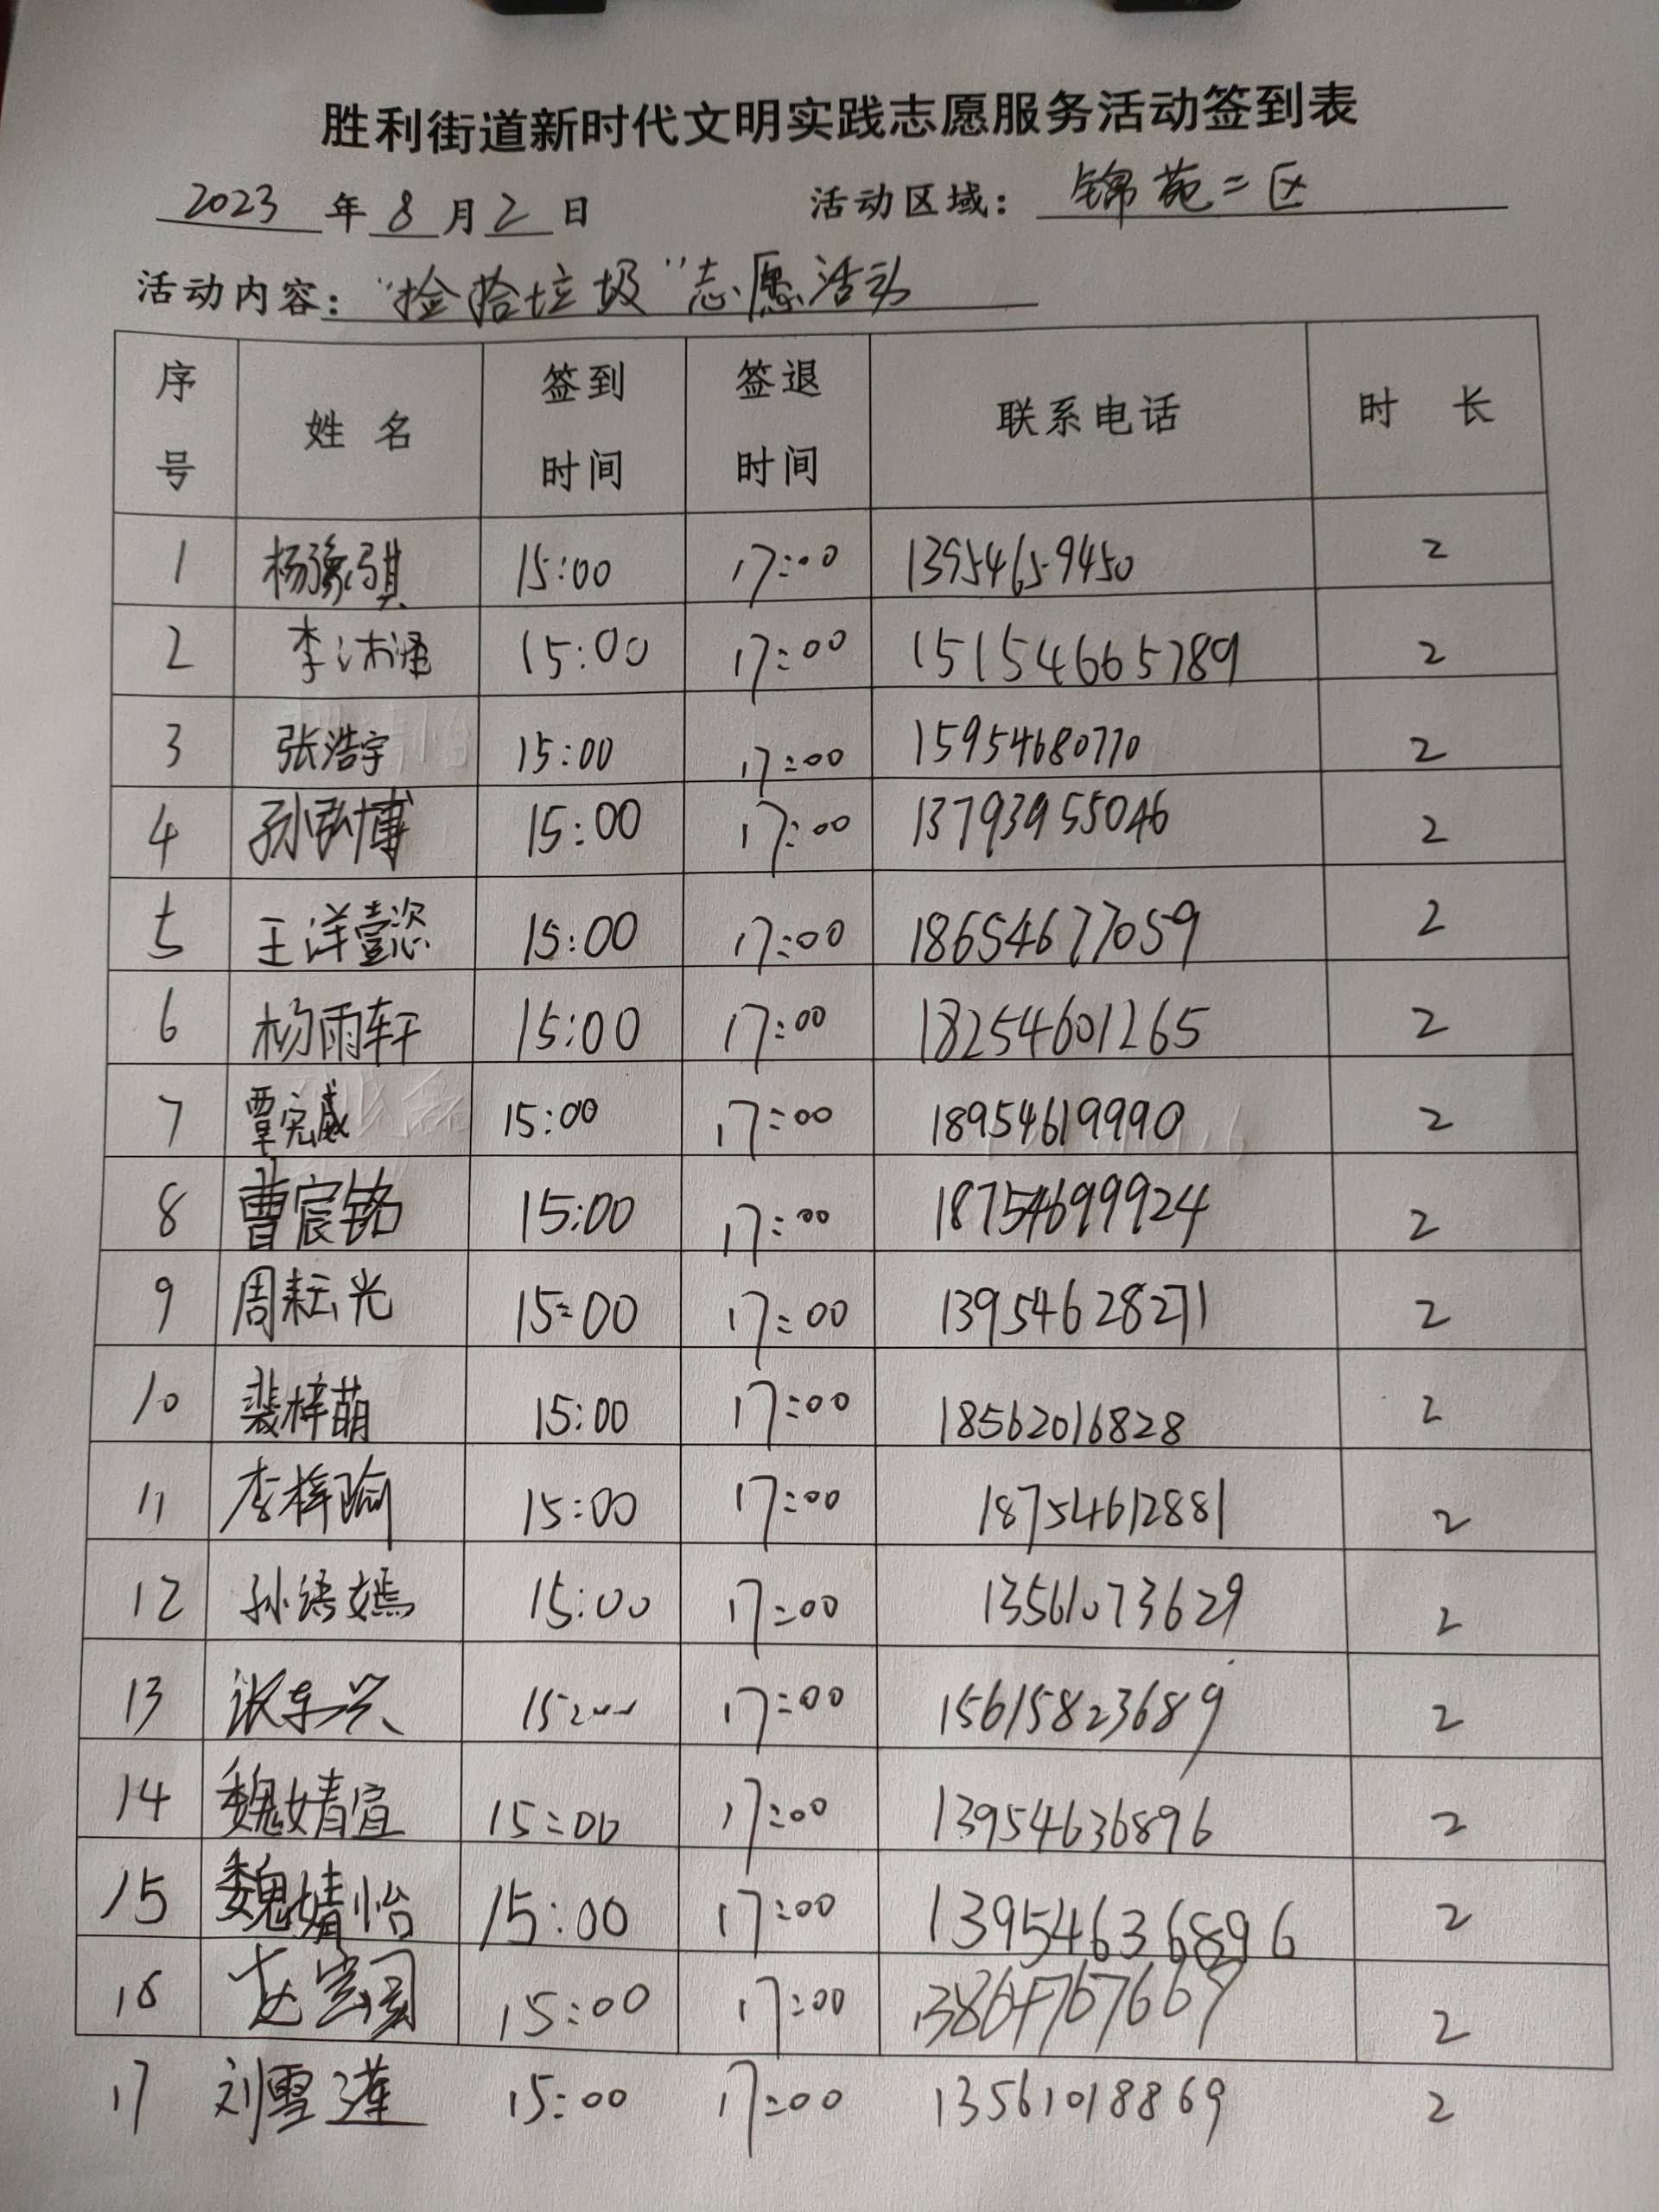 胜利街道新时代文明实践志愿服务活动签到表
2023 年 8 月 2 日 活动区域: 锦苑二区
活动内容: “捡拾垃圾”志愿活动
序号 姓名 签到时间 签退时间 联系电话 时 长
1 杨豫骐 15:00 17:00 13954659450 2
2 李沐语 15:00 17:00 151546665789 2
3 张浩宇 15:00 17:00 15954680770 2
4 孙弘博 15:00 17:00 13793955046 2
5 王洋壹恣 15:00 17:00 18654677059 2
6 杨雨轩 15:00 17:00 18254601265 2
7 覃宪威 15:00 17:00 18954619990 2
8 曹宸铭 15:00 17:00 18754699924 2
9 周耘光 15:00 17:00 13954628271 2
10 裴梓萌 15:00 17:00 18562016828 2
11 李梓瑜 15:00 17:00 18754612881 2
12 孙语嫣 15:00 17:00 13561073629 2
13 张东兴 15:00 17:00 15615823689 2
14 魏婧宜 15:00 17:00 13954636896 2
15 魏婧怡 15:00 17:00 13954636896 2
16 15:00 17:00 2
17 刘雪莲 15:00 17:00 13561018869 2